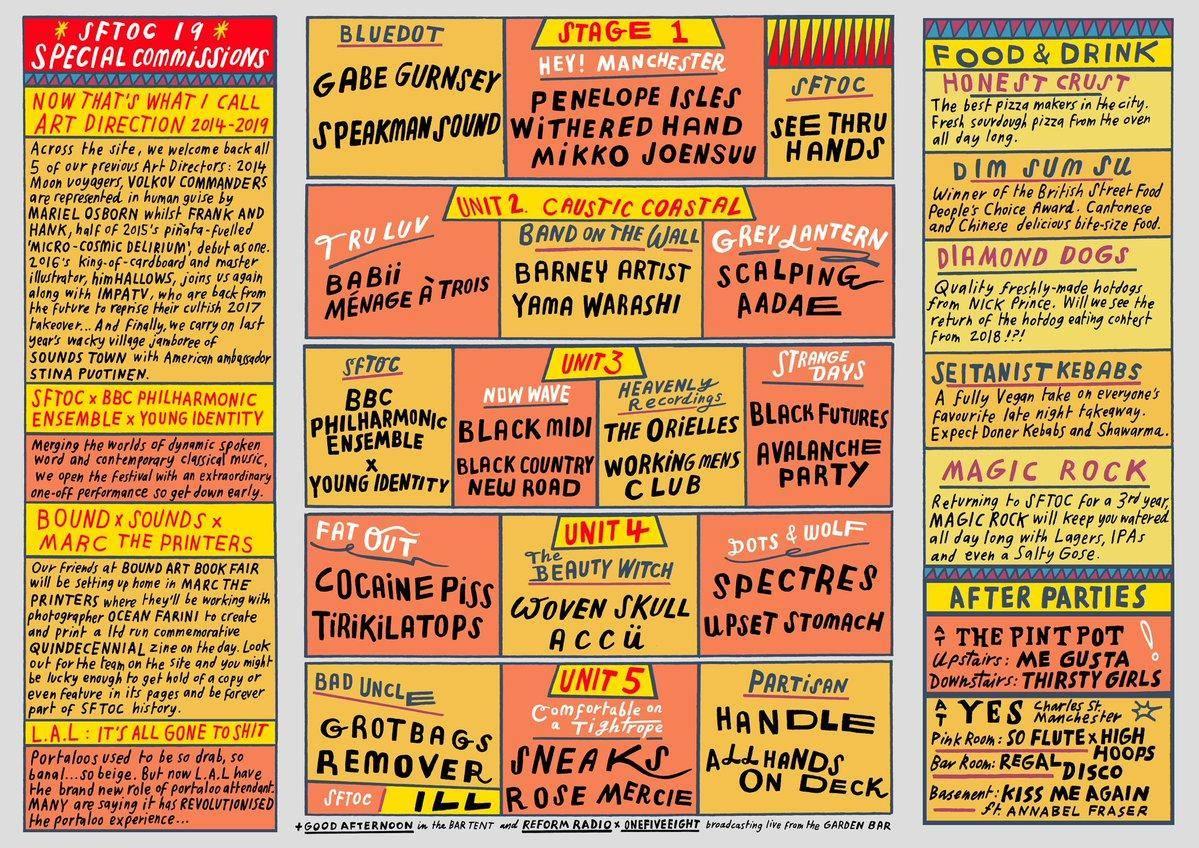 SFTOC 19
SPECIAL COMMISSIONS
NOW THAT'S WHAT I CALL
ART DIRECTION 2014-2019
Across the site, we welcome back all
5 of our previous Art Directors: 2014
Moon voyagers, VOLKOV COMMANDERS
are represented in human guise by
MARIEL OSBORN whilst FRANK AND
HANK, half of 2015's piñata-fuelled
'MICRO-COSMIC DELIRIUM', debut as one.
2016's king-of-cardboard and master
illustrator, himHALLOWS, joins us again
along with IMPATV, who are back from
the future to reprise their cultish 2017
takeover... And finally, we carry on last
year's wacky village jamboree of
SOUNDS TOWN with American ambassador
STINA PUOTINEN.
SFTOC x BBC PHILHARMONIC
ENSEMBLE x YOUNG IDENTITY
Merging the worlds of dynamic spoken
word and contemporary classical music,
we open the festival with an extraordinary
one-off performance so get down early.
BOUND x SOUNDS x
MARC THE PRINTERS
Our friends at BOUND ART BOOK FAIR
will be setting up home in MARC THE
PRINTERS where they'll be working with
photographer OCEAN FARINI to create
and print a ltd run commemorative
QUINDECENNIAL zine on the day. Look
out for the team on the site and you might
be lucky enough to get hold of a copy or
even feature in its pages and be forever
part of SFTOC history.
L.A.L: IT'S ALL GONE TO SHIT
Portaloos used to be so drab, so
banal...so beige. But now L.A.L have
the brand new role of portaloo attendant.
MANY are saying it has REVOLUTIONISED
the portaloo experience...
BLUEDOT
GABE GURNSEY
SPEAKMAN SOUND
STAGE 1
HEY! MANCHESTER
PENELOPE ISLES
WITHERED HAND
MIKKO JOENSUU
SFTOC
SEE THRU
HANDS
UNIT 2. CAUSTIC COASTAL
TRU LUV
BABii
MÉNAGE À TROIS
BAND ON THE WALL
BARNEY ARTIST
YAMA WARASHI
GREY LANTERN
SCALPING
AADAE
UNIT 3
SFTOC
BBC
PHILHARMONIC
ENSEMBLE
x
YOUNG IDENTITY
NOW WAVE
BLACK MIDI
BLACK COUNTRY
NEW ROAD
HEAVENLY
Recordings
THE ORiELLES
WORKING MENS
CLUB
STRANGE
DAYS
BLACK FUTURES
AVALANCHE
PARTY
UNIT 4
FAT OUT
COCAiNE PISS
TiRiKiLATOPS
The
BEAUTY WITCH
WOVEN SKULL
ACCÜ
DOTS & WOLF
SPECTRES
UPSET STOMACH
UNIT 5
BAD UNCLE
GROTBAGS
REMOVER
SFTOC
ILL
Comfortable on
a Tightrope
SNEAKS
ROSE MERCIE
PARTiSAN
HANDLE
ALL HANDS
ON DECK
+ GOOD AFTERNOON in the BAR TENT and REFORM RADIO x ONEFIVEEIGHT broadcasting live from the GARDEN BAR
FOOD & DRINK
HONEST CRUST
The best pizza makers in the city.
Fresh sourdough pizza from the oven
all day long.
DIM SUM SU
Winner of the British Street Food
People's Choice Award. Cantonese
and Chinese delicious bite-size food.
DIAMOND DOGS
Quality freshly-made hotdogs
from NICK PRINCE. Will we see the
return of the hotdog eating contest
from 2018!?!
SEITANIST KEBABS
A fully Vegan take on everyone's
favourite late night takeaway.
Expect Doner Kebabs and Shawarma..
MAGIC ROCK
Returning to SFTOC for a 3rd year,
MAGIC ROCK will keep you watered
all day long with Lagers, IPAs
and even a Salty Gose.
AFTER PARTIES
AT THE PINT POT!
Upstairs: ME GUSTA
Downstairs: THIRSTY GIRLS
AT YES Charles St, Manchester
Pink Room: SO FLUTE x HIGH HOOPS
Bar Room: REGAL DISCO
Basement: KISS ME AGAIN
ft. ANNABEL FRASER